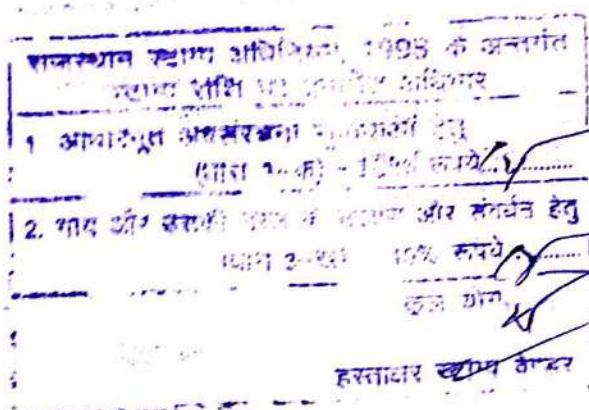 राजस्थान स्टाम्प अधिनियम, 1998 के अन्तर्गत
स्टाम्प राशि पर अधिभार
1. आधारभूत अवसंरचना हेतु
(धारा 3-क) - 10% रूपये
2. गाय और उसकी नस्ल के और संवर्धन हेतु
(धारा 3-ख) 10% रूपये
कुल योग
हस्ताक्षर स्टाम्प वेण्डर